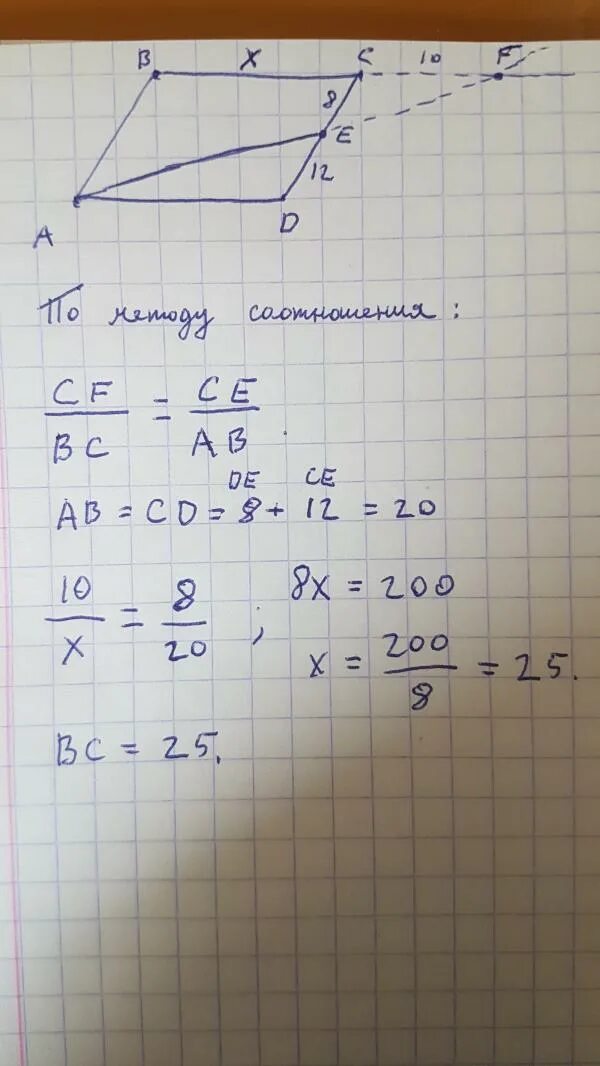 B X C 10 F
8
E
12
A D
По методу соотношения:
CF/BC = CE/AB.
DE CE
AB = CD = 8 + 12 = 20
10/X = 8/20; 8X = 200
X = 200/8 = 25.
BC = 25.